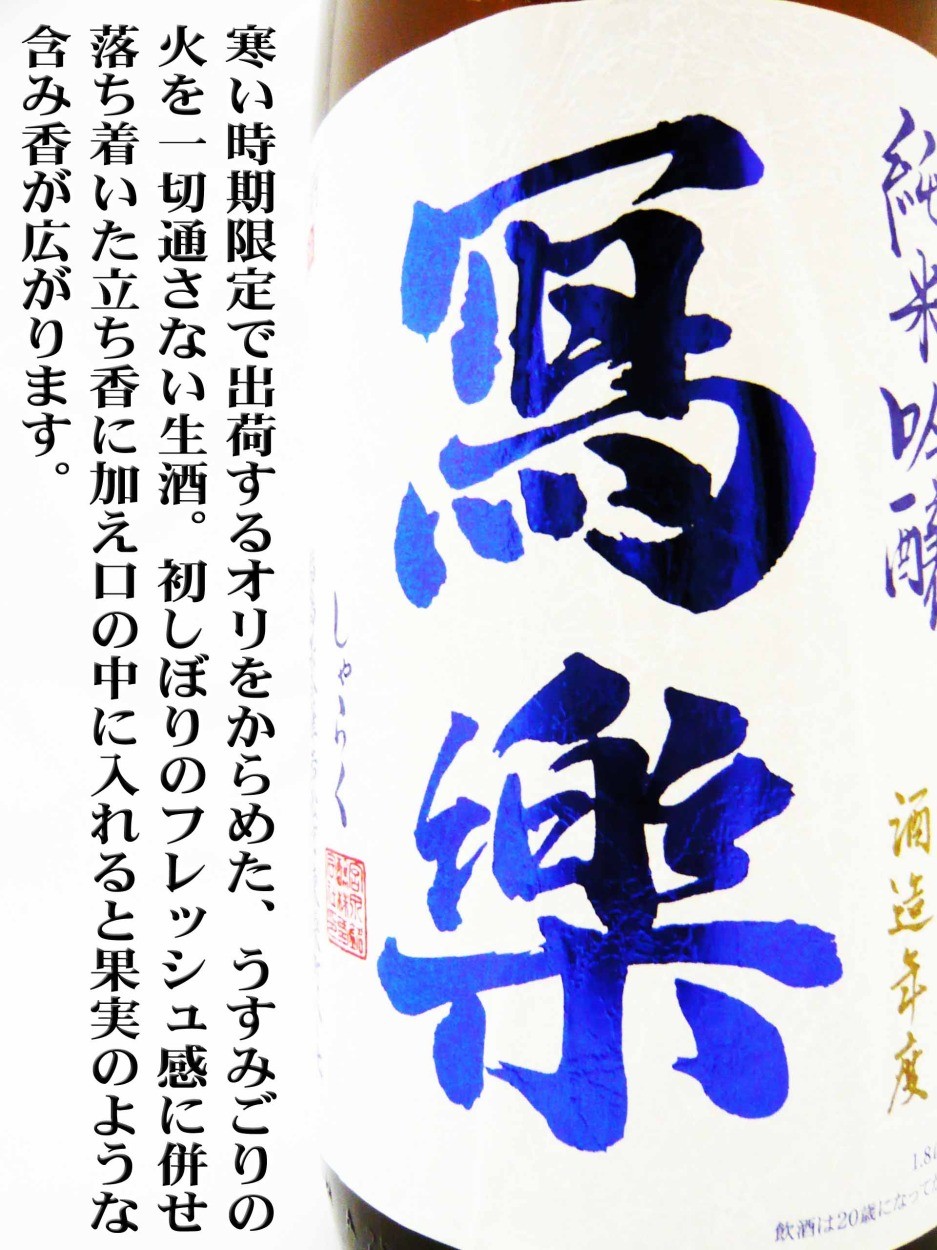 寒い時期限定で出荷するオリをからめた、うすみごりの
火を一切通さない生酒。初しぼりのフレッシュ感に併せ
落ち着いた立ち香に加え口の中に入れると果実のような
含み香が広がります。
純米吟醸
酒造年度
寫樂
しゃらく
1.8
飲酒は20歳になって